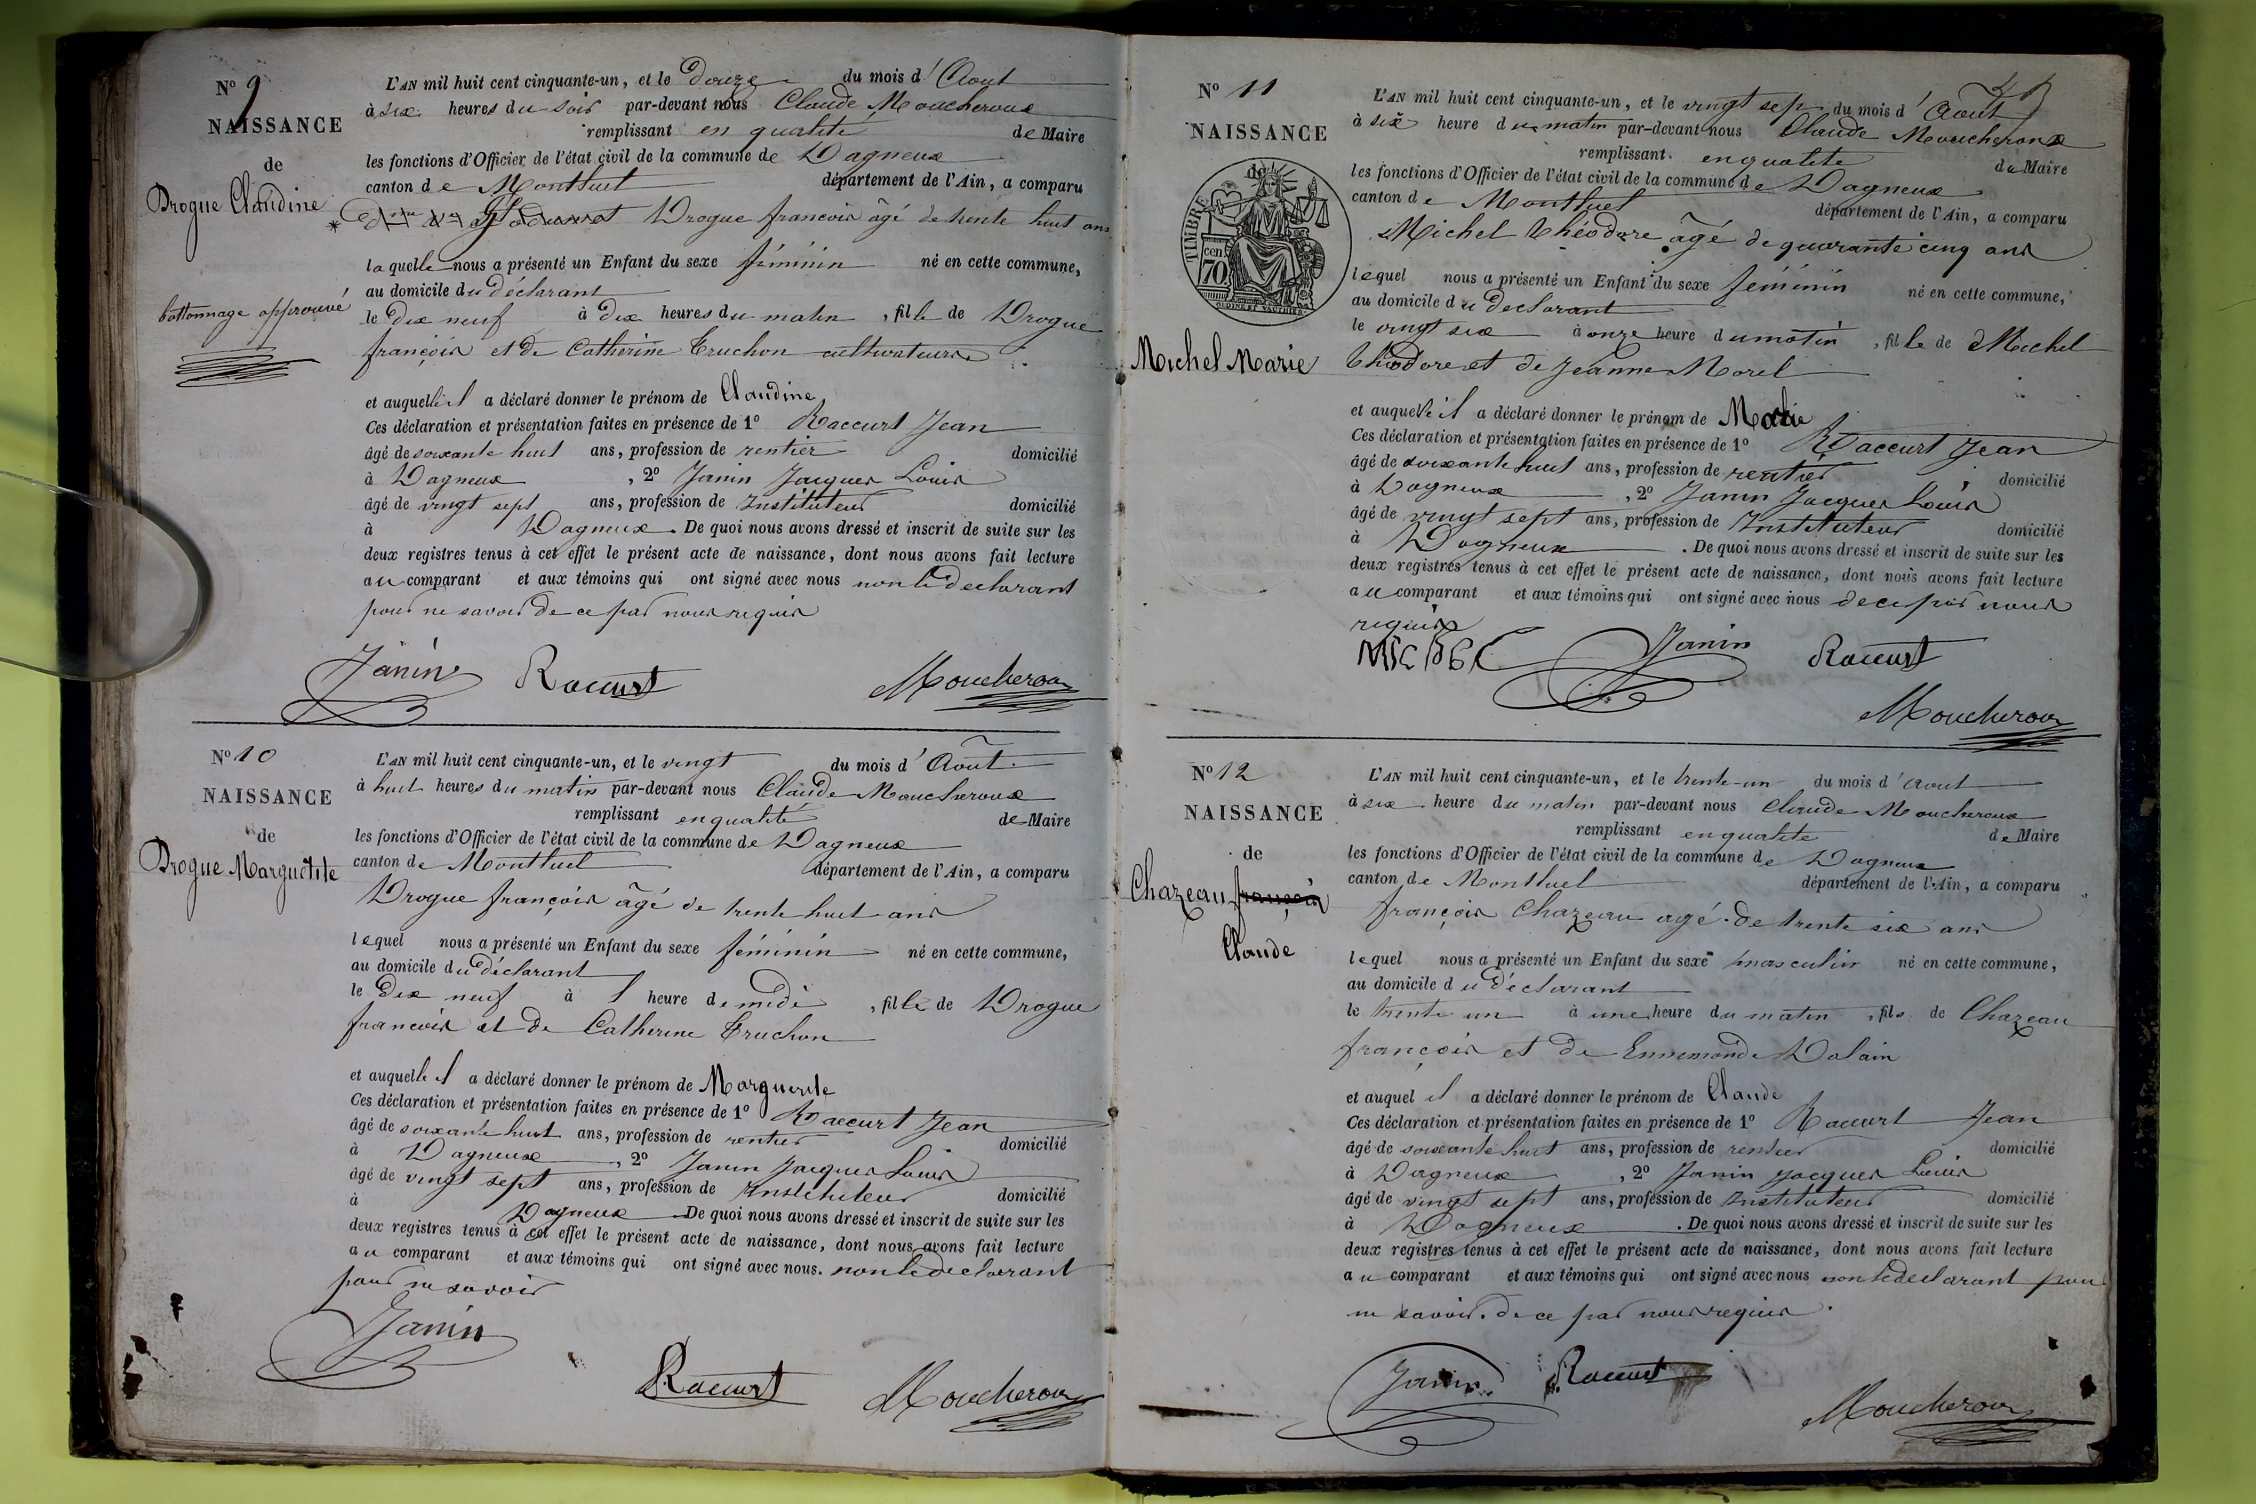 N° 9
NAISSANCE
de
Drogue Claudine
battonnage approuvé
L'AN mil huit cent cinquante-un, et le douze du mois d'Aout
à six heures du soir par-devant nous Claude Moucheroux
remplissant en qualité de Maire
les fonctions d'Officier de l'état civil de la commune de Dagneux
canton de Montluel département de l'Ain, a comparu
* Drogue francois âgé de trente huit ans
laquelle nous a présenté un Enfant du sexe féminin né en cette commune,
au domicile du déclarant
le dix neuf à dix heures du matin, fille de Drogue
françois et de Catherine Truchon cultivateurs
et auquelle il a déclaré donner le prénom de Claudine
Ces déclaration et présentation faites en présence de 1° Raccurt Jean
âgé de soixante huit ans, profession de rentier domicilié
à Dagneux, 2° Janin Jacques Louis
âgé de vingt sept ans, profession de Instituteur domicilié
à Dagneux. De quoi nous avons dressé et inscrit de suite sur les
deux registres tenus à cet effet le présent acte de naissance, dont nous avons fait lecture
au comparant et aux témoins qui ont signé avec nous non le declarant
pour ne savoir de ce par nous requis
Janin Raccurt Moucheroux
N° 10
NAISSANCE
de
Drogue Marguerite
L'AN mil huit cent cinquante-un, et le vingt du mois d'Août
à huit heures du matin par-devant nous Claude Moucheroux
remplissant en qualité de Maire
les fonctions d'Officier de l'état civil de la commune de Dagneux
canton de Montluel département de l'Ain, a comparu
Drogue françois âgé de trente huit ans
lequel nous a présenté un Enfant du sexe féminin né en cette commune,
au domicile du déclarant
le dix neuf à heure de midi, fille de Drogue
francois et de Catherine Truchon
et auquelle il a déclaré donner le prénom de Marguerite
Ces déclaration et présentation faites en présence de 1° Raccurt Jean
âgé de soixante huit ans, profession de rentier domicilié
à Dagneux, 2° Janin Jacques Louis
âgé de vingt sept ans, profession de Instituteur domicilié
à Dagneux De quoi nous avons dressé et inscrit de suite sur les
deux registres tenus à cet effet le présent acte de naissance, dont nous avons fait lecture
au comparant et aux témoins qui ont signé avec nous. non le declarant
pour ne savoir
Janin
Raccurt Moucheroux
N° 11
NAISSANCE
de
TIMBRE
70 cen.
Michel Marie
L'AN mil huit cent cinquante-un, et le vingt sep du mois d'Août
à six heure du matin par-devant nous Claude Moucheroux
remplissant en qualité de Maire
les fonctions d'Officier de l'état civil de la commune de Dagneux
canton de Montluel département de l'Ain, a comparu
Michel Théodore âgé de quarante cinq ans
lequel nous a présenté un Enfant du sexe féminin né en cette commune,
au domicile du declarant
le vingt six à onze heure du matin, fille de Michel
Théodore et de Jeanne Morel
et auquelle il a déclaré donner le prénom de Marie
Ces déclaration et présentation faites en présence de 1° Raccurt Jean
âgé de soixante huit ans, profession de rentier domicilié
à Dagneux, 2° Janin Jacques Louis
âgé de vingt sept ans, profession de Instituteur domicilié
à Dagneux. De quoi nous avons dressé et inscrit de suite sur les
deux registres tenus à cet effet le présent acte de naissance, dont nous avons fait lecture
au comparant et aux témoins qui ont signé avec nous de ce par nous
requis
Janin Raccurt
Moucheroux
N° 12
NAISSANCE
de
Chazeau françois
Claude
L'AN mil huit cent cinquante-un, et le trente-un du mois d'Aout
à six heure du matin par-devant nous Claude Moucheroux
remplissant en qualité de Maire
les fonctions d'Officier de l'état civil de la commune de Dagneux
canton de Montluel département de l'Ain, a comparu
françois Chazeau agé de trente six ans
lequel nous a présenté un Enfant du sexe masculin né en cette commune,
au domicile du déclarant
le trente un à une heure du matin, fils de Chazeau
françois et de Ennemonde Dalain
et auquel il a déclaré donner le prénom de Claude
Ces déclaration et présentation faites en présence de 1° Raccurt Jean
âgé de soixante huit ans, profession de rentier domicilié
à Dagneux, 2° Janin Jacques Louis
âgé de vingt sept ans, profession de Instituteur domicilié
à Dagneux. De quoi nous avons dressé et inscrit de suite sur les
deux registres tenus à cet effet le présent acte de naissance, dont nous avons fait lecture
au comparant et aux témoins qui ont signé avec nous non le declarant pour
ne savoir. de ce par nous requis.
Janin Raccurt
Moucheroux